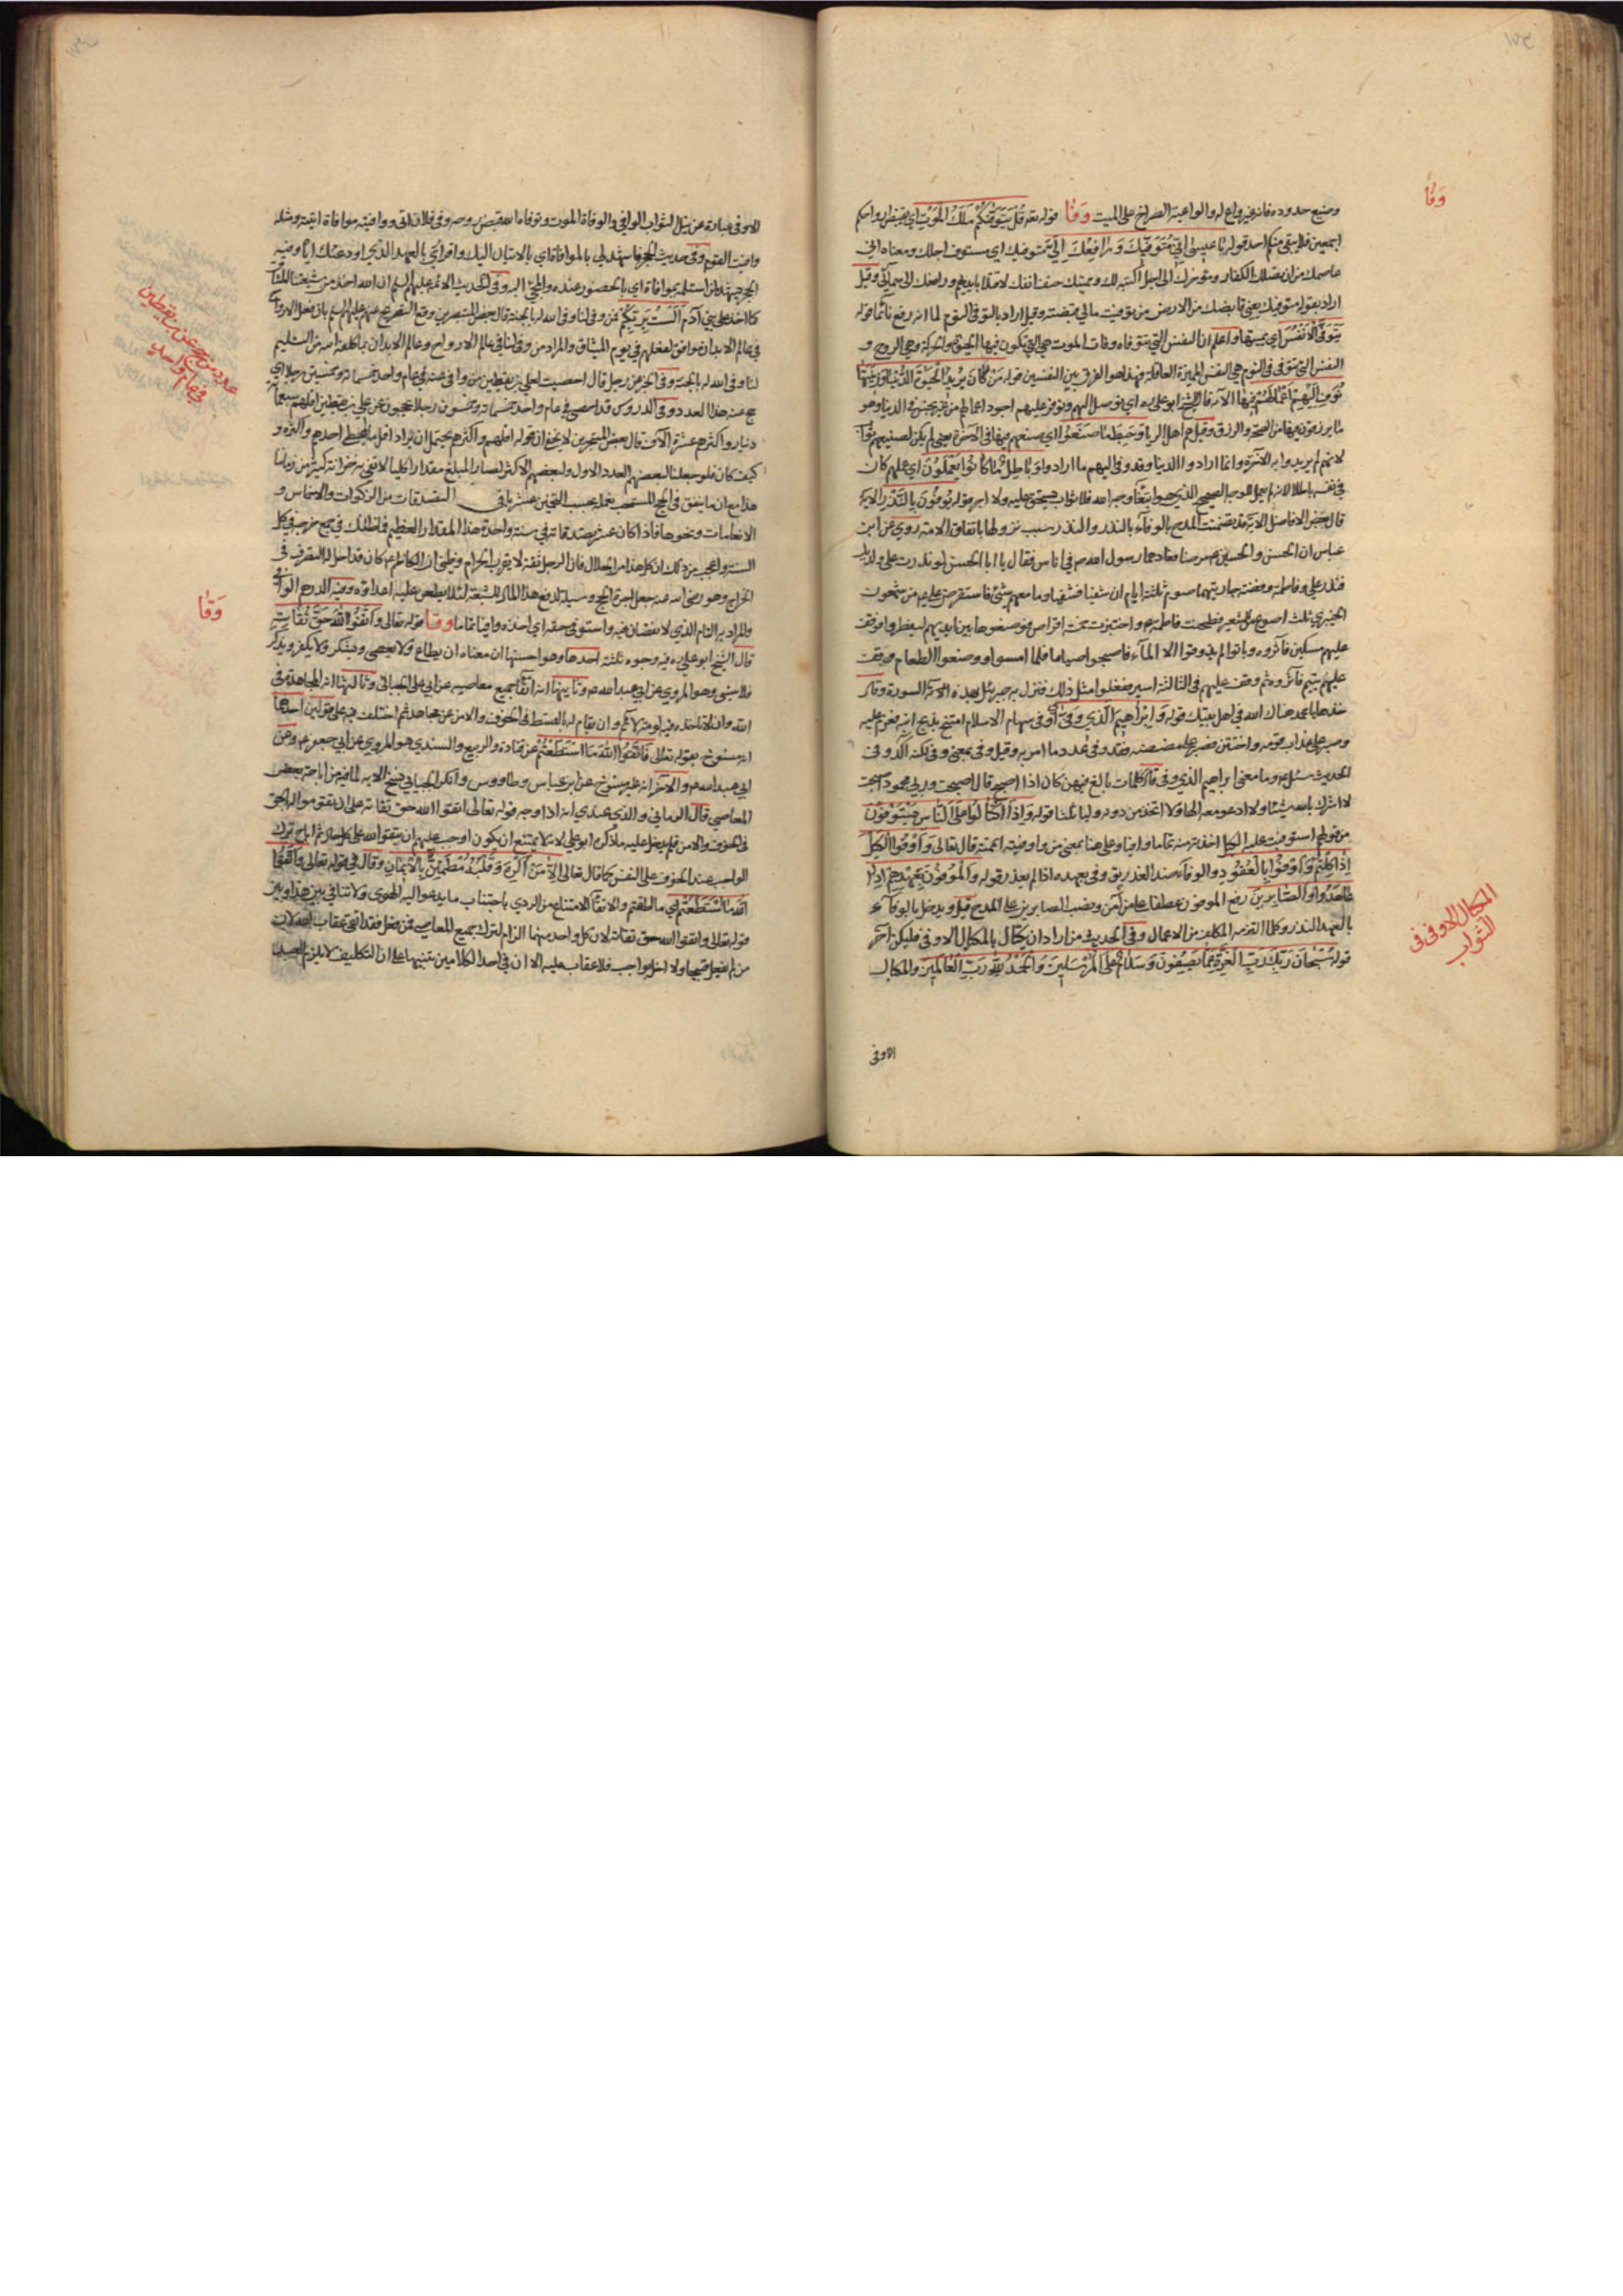 وضيع حدوده فانه غير واع له والواعية الصراخ على الميت وَفَا قوله تعه قُلْ يَتَوَفّٰكُمْ مَلَكُ الْمَوْتِ اي يقبض ارواحكم
اجمعين فلا يبقى منكم احد قوله يَا عِيسى اِنّي مُتَوَفّيكَ وَرَافِعُكَ اِلَيَّ متوفيك اي مستوف اجلك ومعناه اني
عاصمك من ان يقتلك الكفار ومؤخرك الى اجل اكتبه لك ومميتك حتف انفك لا قتلا بايديهم ورافعك الى سمائي وقيل
اراد بقوله متوفيك يعني قابضك من الارض من توفيت مالي قبضته وقيل اراد بالتوفي النوم لما انه رفع نائما قوله
يَتَوَفَّى الْاَنْفُسَ اي يميتها واعلم ان النفس التي تتوفاه وفات الموت هي التي يكون فيها الحيوة والحركة وهي الروح و
النفس التي تتوفى في النوم هي النفس المميزة العاقلة فهذا هو الفرق بين النفسين قوله مَنْ كَانَ يُرِيدُ الْحَيٰوةَ الدُّنْيَا وَزِينَتَهَا
نُوَفِّ اِلَيْهِمْ اَعْمَالَهُمْ فِيهَا الآية قال الشيخ ابو علي ره اي نوصل اليهم ونوفر عليهم اجور اعمالهم من غير بخس في الدنيا وهو
ما يرزقون فيها من الصحة والرزق وقيل هم اهل الريا وَحَبِطَ مَا صَنَعُوا اي صنعهم فيها في الآخرة يعني لم يكن لصنيعهم ثواب
لانهم لم يريدوا به الآخرة وانما ارادوا الدنيا وقد وفي اليهم ما ارادوا وَبَاطِلٌ مَا كَانُوا يَعْمَلُونَ اي عملهم كان
في نفسه باطلا لانه لم يعمل للوجه الصحيح الذي هو ابتغاء وجه الله فلا ثواب يستحق عليه ولا اجر قوله يُوفُونَ بِالنَّذْرِ الاية
قال بعض الافاضل الاية قد تضمنت المدح بالوفآء بالنذر والنذر سبب نزولها باتفاق الامة روي عن ابن
عباس ان الحسن والحسين ع مرضا فعادهما رسول الله ص في اناس فقال يا ابا الحسن لو نذرت على ولديك
فنذر علي وفاطمة وفضة جاريتهما صوم ثلثة ايام ان شفيا فشفيا وما معهم شئ فاستقرض علي ع من شمعون
الخيبري ثلث اصوع من الشعير فطحنت فاطمة ع واختبزت خمسة اقراص فوضعوها بين ايديهم ليفطروا فوقف
عليهم مسكين فآثروه وباتوا لم يذوقوا الا المآء فاصبحوا صياما فلما امسوا ووضعوا الطعام فوقف
عليهم يتيم فآثروه ثم وقف عليهم في الثالثة اسير ففعلوا مثل ذلك فنزل به جبرئيل بهذه السورة وقال
خذها يا محمد هناك الله في اهل بيتك قوله وَاِبْرَاهِيمَ الَّذِي وَفّٰى اي وفى سهام الاسلام امتحن بذبح ابنه فعزم عليه
وصبر على عذاب قومه واختتن فصبر على مضضه وقيل وفى بمعنى وفى لكنه آكد وفي
الحديث سئل ع وما معنى ابراهيم الذي وفى قال كلمات بالغ فيهن كان اذا اصبح قال اصبحت وربي محمود اصبحت
لا اشرك بالله شيئا ولا ادعو معه الها ولا اتخذ من دونه وليا ثلثا قوله وَاِذَا اكْتَالُوا عَلَى النَّاسِ يَسْتَوْفُونَ
من قولهم استوفيت عليه الكيل اخذته منه تماما وافيا وعلى هنا بمعنى من واوفيته اتممته قال تعالى وَاَوْفُوا الْكَيْلَ
اِذَا كِلْتُمْ وَاَوْفُوا بِالْعُقُودِ والوفآء ضد الغدر يق وفى بعهده اذا لم يغدر قوله وَالْمُوفُونَ بِعَهْدِهِمْ اِذَا
عَاهَدُوا وَالصَّابِرِينَ رفع الموفون عطفا على من آمن ونصب الصابرين على المدح قيل ويدخل بالوفآء
بالعهد النذر وكلما التزمه المكلف من الاعمال وفي الحديث من اراد ان يكتال بالمكيال الاوفى فليكن آخر
قوله سُبْحَانَ رَبِّكَ رَبِّ الْعِزَّةِ عَمَّا يَصِفُونَ وَسَلَامٌ عَلَى الْمُرْسَلِينَ وَالْحَمْدُ لِلّٰهِ رَبِّ الْعَالَمِينَ والمكيال
الاوفى
وَفَا
المكيال الاوفى في
الثواب
الاوفى عبارة عن نيل الثواب الوافي والوفاة الموت وتوفاه الله قبض روحه ووفى فلان اتى ووافيته موافاة اتيته ومثله
وافيت القوم وفي حديث الحجر فاشهد لي بالموافاة اي بالاتيان اليك واقراري بالعهد الذي اودعتك اياه وفيه
الحجر يشهد لمن استلمه بموافاة اي بالحضور عنده والمجئ اليه وفي الحديث الائمة عليهم السلم ان الله اخذ من شيعتنا الميثاق
كما اخذ على بني آدم اَلَسْتُ بِرَبِّكُمْ فمن وفى لنا وفى الله له بالجنة قال بعض المتبحرين وقع التصريح عنهم عليهم السلم بان فعل الارواح
في عالم الابدان موافق لفعلهم في يوم الميثاق والمراد من وفى لنا في عالم الارواح وعالم الابدان بما كلفه الله من التسليم
لنا وفى الله له بالجنة وفي الخبر عن رجل قال احصيت لعلي بن يقطين من وافى عنه في عام واحد خمسمائة وخمسين رجلا اي
حج عنه هذا العدد وفي الدروس قد احصى في عام واحد خمسمائة وخمسون رجلا يحجون عن علي بن يقطين اقلهم سبعمائة
دينار واكثرهم عشرة آلاف قال بعض المتبحرين لا يخفى ان قوله اقلهم واكثرهم يحتمل ان يراد اقل ما يعطى احدهم واكثره و
كيف كان فلو جعلنا لبعضهم العدد الاول ولبعضهم الاكثر لصار المبلغ مقدارا كليا لا تفي به خزانة كثير من زماننا
الانعامات ونحوها فاذا كان عنده صدقاته في سنة واحدة هذا المقدار العظيم فما ظنك في جميع خرجه في كل
السنة واعجب من ذلك ان كل هذا من الحلال فان الرجل ثقة لا يقرب الحرام وظني ان الكاظم ع كان قد احل له التصرف في
الخراج وهو رضي الله عنه جعل اجرة الحج وسيلة لدفع هذا المال للشيعة لئلا يطعن عليه اعداؤه وفيه الدرهم الوافي
والمراد به التام الذي لا نقصان فيه واستوفى حقه اي اخذه وافيا تماما وقا قوله تعالى وَاتَّقُوا اللّٰهَ حَقَّ تُقَاتِهِ
قال الشيخ ابو علي ره فيه وجوه ثلثة احدها وهو احسنها ان معناه ان يطاع ولا يعصى ويشكر ولا يكفر ويذكر
فلا ينسى وهو المروي عن ابي عبد الله ع وثانيها انه اتقاء جميع معاصيه عن ابي علي الجبائي وثالثها انه المجاهدة في
الله وان لا تاخذه فيه لومة لائم وان يقام له بالقسط في الخوف والامن عن مجاهد ثم اختلف فيه على قولين احدهما
انه منسوخ بقوله تعالى فَاتَّقُوا اللّٰهَ مَا اسْتَطَعْتُمْ عن قتادة والربيع والسدي وهو المروي عن ابي جعفر ع وعن
ابي عبد الله ع والآخر انه غير منسوخ عن ابن عباس وطاووس وانكر الجبائي نسخ الاية لما فيه من اباحة بعض
المعاصي قال الرماني والذي عندي انه اذا وجه قوله تعالى اتقوا الله حق تقاته على ان تقوموا له بالحق
في الخوف والامن لم يدخل عليه ما ذكره ابو علي لانه لا يمتنع ان يكون اوجب عليهم ان يتقوا الله على كل حال ثم اباح ترك
الواجب عند الخوف على النفس كما قال تعالى اِلَّا مَنْ اُكْرِهَ وَقَلْبُهُ مُطْمَئِنٌّ بِالْاِيمَانِ وقال في قوله تعالى فَاتَّقُوا
اللّٰهَ مَا اسْتَطَعْتُمْ اي ما اطقتم والاتقآء الامتناع من الردي باجتناب ما يدعو اليه الهوى ولا تنافي بين هذا وبين
قوله تعالى واتقوا الله حق تقاته لان كل واحد منهما الزام لترك جميع المعاصي فمن فعل فقد اتقى عقاب الله لان
من لم يفعل قبيحا ولا اخل بواجب فلا عقاب عليه الا ان في احد الكلامين تنبيها على ان التكليف لا يلزم العبد
عدد من حج عن بن يقطين
في عام واحد
وَقَا